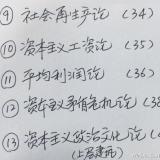 ⑨ 社会再生产论 (34)
⑩ 资本主义工资论 (35)
⑪ 平均利润论 (36)
⑫ 资本主义矛盾危机论 (38
⑬ 资本主义政治文化论
(上层建筑)